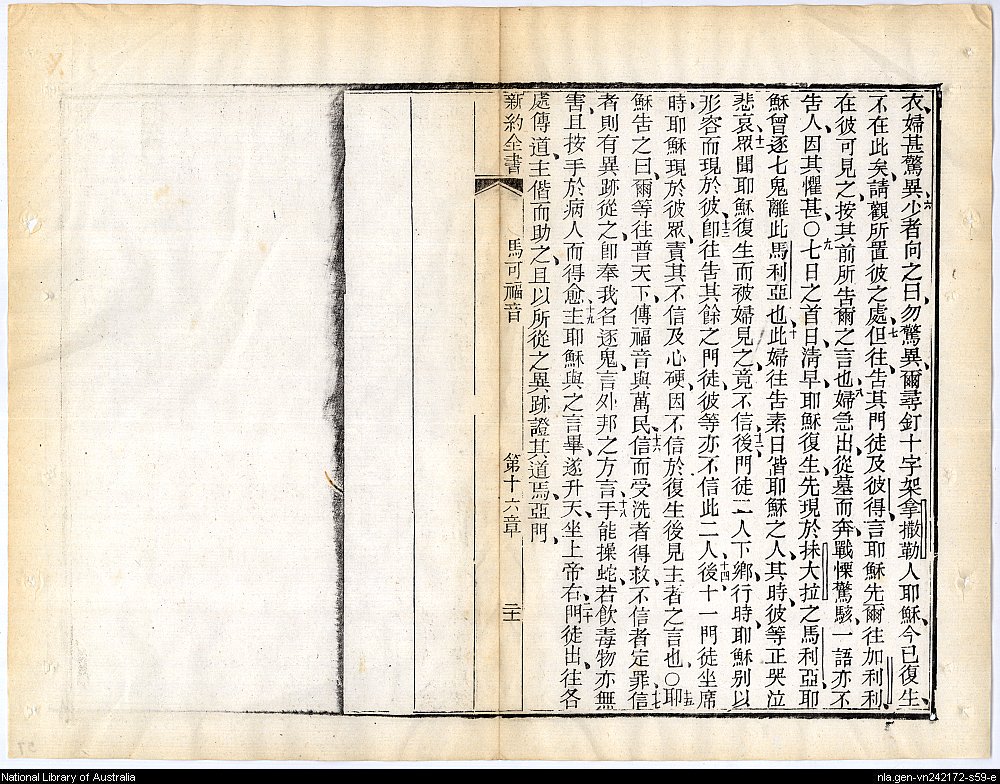 衣、婦甚驚異、六少者向之曰、勿驚異、爾尋釘十字架拿撒勒人耶穌、今已復生、
不在此矣、請觀所置彼之處、七但往告其門徒及彼得、言耶穌先爾往加利利、
在彼可見之、按其前所告爾之言也、八婦急出、從墓而奔、戰慄驚駭、一語亦不
告人、因其懼甚、〇九七日之首日、淸早、耶穌復生、先現於抹大拉之馬利亞、耶
穌曾逐七鬼離此馬利亞也、十此婦往告素日偕耶穌之人、其時彼等正哭泣
悲哀、十一眾聞耶穌復生而被婦見之、竟不信、十二後門徒二人下鄉、行時、耶穌別以
形容而現於彼、十三卽往告其餘之門徒、彼等亦不信此二人、十四後十一門徒坐席
時、耶穌現於彼眾、責其不信及心硬、因不信於復生後見主者之言也、〇十五耶
穌告之曰、爾等往普天下、傳福音與萬民、十六信而受洗者得救、不信者定罪、十七信
者則有異跡從之、卽奉我名逐鬼、言外邦之方言、十八手能操蛇、若飮毒物亦無
害、且按手於病人而得愈、十九主耶穌與之言畢、遂升天、坐上帝右、二十門徒出、往各
處傳道、主偕而助之、且以所從之異跡、證其道焉、亞門、
新約全書 馬可福音 第十六章 二十
National Library of Australia
nla.gen-vn242172-s59-e